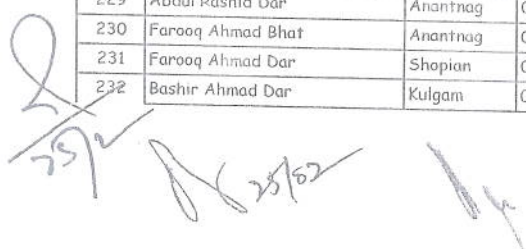 229 Abdul Rashid Dar Anantnag
230 Farooq Ahmad Bhat Anantnag
231 Farooq Ahmad Dar Shopian
232 Bashir Ahmad Dar Kulgam
25/2
25/02